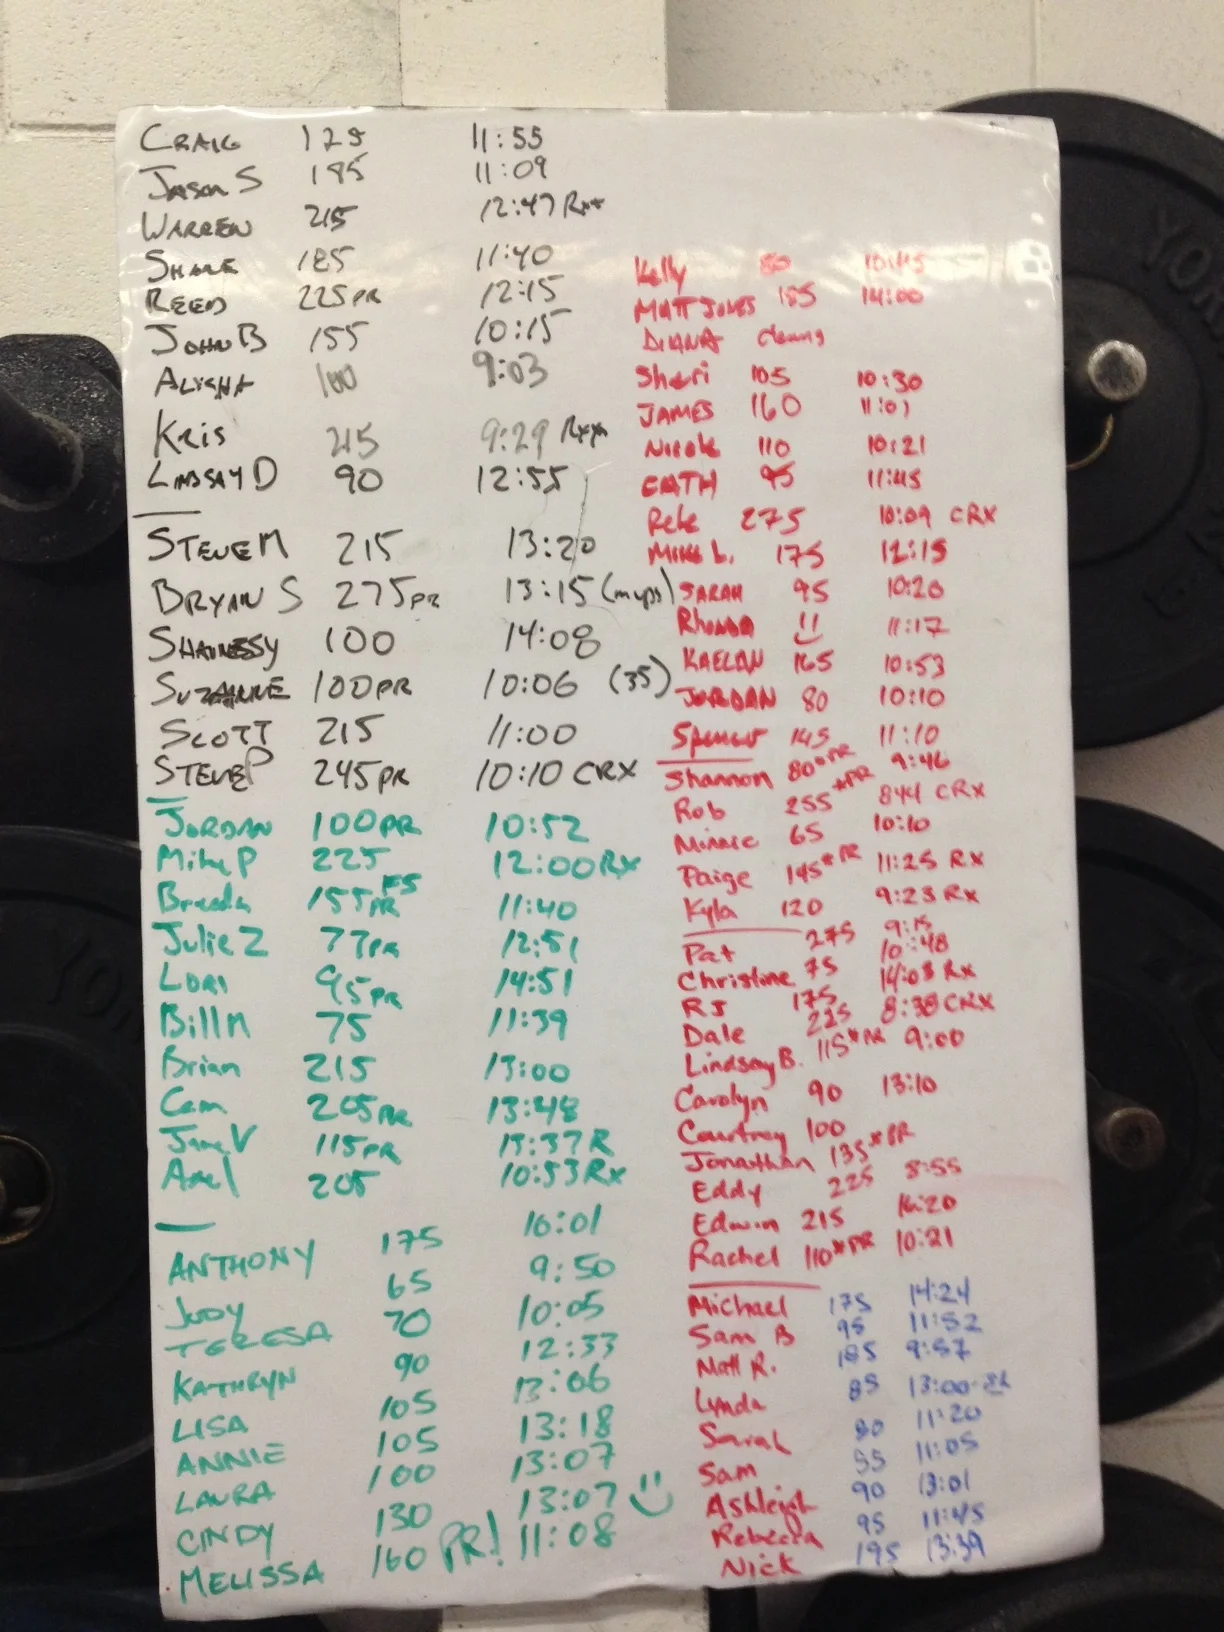 CRAIG 125 11:55
JASON S 185 11:09
WARREN 215 12:47 Rx+
SHANE 185 11:40
REED 225 PR 12:15
JOHN B 155 10:15
ALISHA 100 9:03
KRIS 215 9:29
LINDSAY D 90 12:55
STEVE M 215 13:20
BRYAN S 275 PR 13:15 (mups)
SHAUNESSY 100 14:08
SUZANNE 100 PR 10:06 (35)
SCOTT 215 11:00
STEVE P 245 PR 10:10 CRX
JORDAN 100 PR 10:52
Mike P 225 12:00 Rx
Brenda 155 PR FS 11:40
Julie Z 77 PR 12:51
LORI 95 PR 14:51
Bill M 75 11:39
Brian 215 13:00
Cam 205 PR 13:48
Jane V 115 PR 13:37 R
Axel 205 10:53 Rx
ANTHONY 175 10:01
JUDY 65 9:50
TERESA 70 10:05
KATHRYN 90 12:33
LISA 105 13:06
ANNIE 105 13:18
LAURA 100 13:07
CINDY 130 13:07
MELISSA 160 PR! 11:08
Kelly 80 10:45
MATT JONES 185 14:00
DIANA
Sheri 105 10:30
JAMES 160 11:01
NICOLE 110 10:21
CATH 95 11:45
Pete 275 10:09 CRX
MIKE L. 175 12:15
SARAH 95 10:20
Rhonda 11:17
KAELAN 165 10:53
JORDAN 80 10:10
Spencer 145 11:10
Shannon 80*PR 9:46
Rob 255*PR 844 CRX
Minnie 65 10:10
Paige 145*PR 11:25 RX
Kyla 120 9:23 RX
Pat 275 9:15
Christine 75 10:48
RJ 175 14:03 Rx
Dale 225 8:38 CRX
Lindsay B. 115*PR 9:00
Carolyn 90 13:10
Courtney 100
Jonathan 135*PR
Eddy 225 8:55
Edwin 215 16:20
Rachel 110*PR 10:21
Michael 175 14:24
Sam B 95 11:52
Matt R. 185 9:57
Lynda 85 13:00
Sarah 80 11:20
Sam 55 11:05
Ashleigh 90 13:01
Rebecca 95 11:45
Nick 195 13:39
YORK